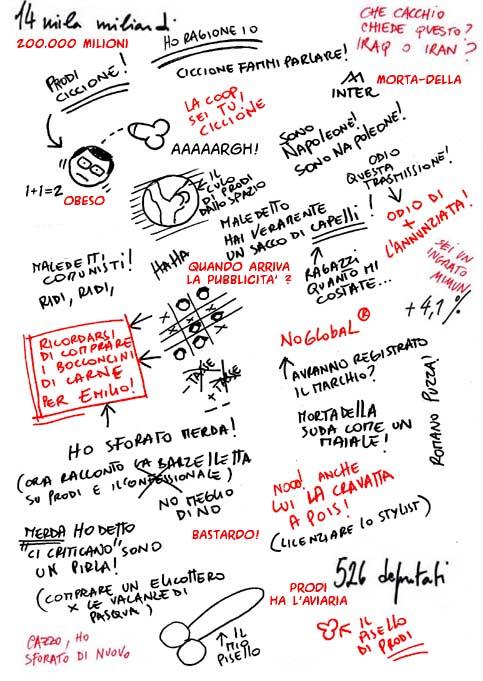 14 mila miliardi
CHE CACCHIO
CHIEDE QUESTO?
IRAQ O IRAN?
200.000 MILIONI
HO RAGIONE IO
CICCIONE FAMMI PARLARE!
PRODI
CICCIONE!
MORTA-DELLA
INTER
LA COOP,
SEI TU!
CICCIONE
SONO
NAPOLEONE!
SONO NAPOLEONE!
AAAAARGH!
ODIO
QUESTA
TRASMISSIONE!
1+1=2
OBESO
IL
CULO
DI PRODI
DALLO SPAZIO
MALEDETTO
HAI VERAMENTE
UN SACCO DI CAPELLI!
ODIO DI
+
L'ANNUNZIATA!
MALEDETTI
COMUNISTI!
RIDI, RIDI,
HAHA
QUANDO ARRIVA
LA PUBBLICITA' ?
RAGAZZI
QUANTO MI
COSTATE...
SEI UN
INGRATO
MIMUN
+4,1%
RICORDARSI
DI COMPRARE
I BOCCONCINI
DI CARNE
PER EMILIO!
- TASSE
+ TASSE
NOGLOBAL®
AVRANNO REGISTRATO
IL MARCHIO?
MORTADELLA
SUDA COME UN
MAIALE!
ROMANO PUZZA!
HO SFORATO MERDA!
(ORA RACCONTO LA BARZELLETTA
SU PRODI E IL CONFESSIONALE)
NO MEGLIO
DI NO
NOOO! ANCHE
LUI LA CRAVATTA
A POIS!
(LICENZIARE LO STYLIST)
MERDA HO DETTO
"CI CRITICANO" SONO
UN PIRLA!
BASTARDO!
(COMPRARE UN ELICOTTERO
X LE VACANZE DI
PASQUA)
PRODI
HA L'AVIARIA
526 deputati
CAZZO, HO
SFORATO DI NUOVO
IL
MIO
PISELLO
IL
PISELLO
DI PRODI